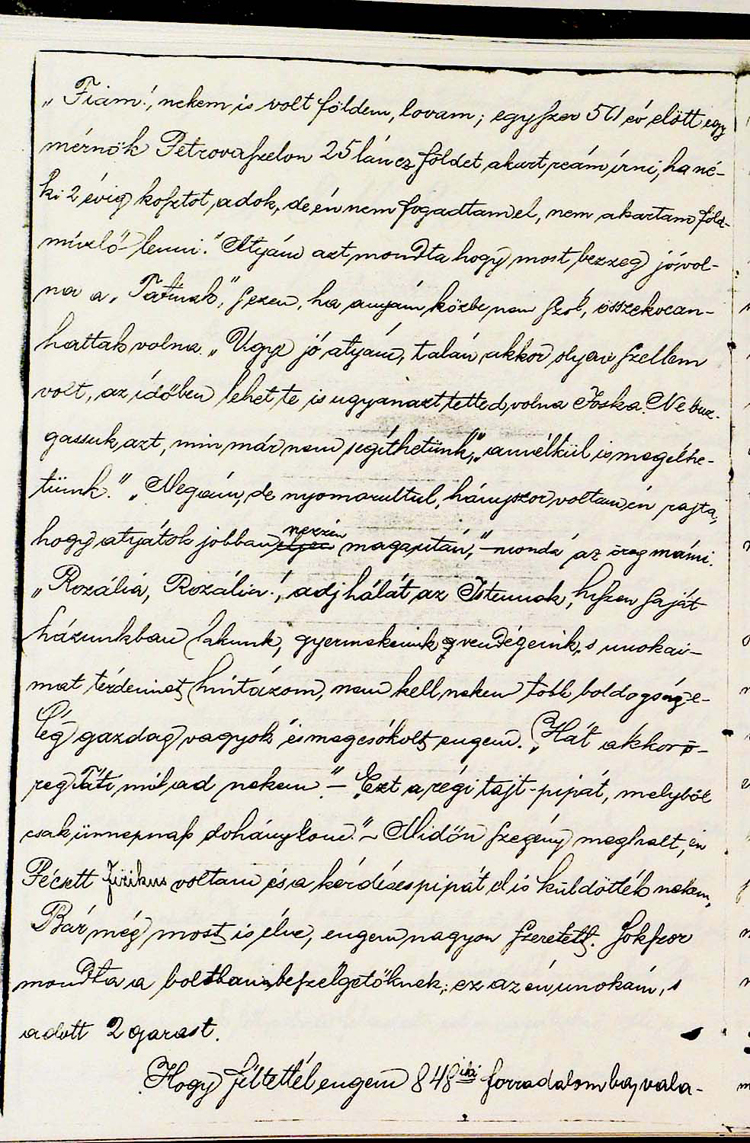 „Fiam!, nekem is volt földem, lovam; egyszer 50 év előtt egy
mérnök Petrovaszelon 25 láncz földet akart reám írni, ha né-
ki 2 évig kosztot adok, de én nem fogadtam el, nem akartam föld-
mívelő lenni." Atyám azt mondta hogy most bezzeg jó vol-
na a „Tátinak", s ha anyám közbe nem szól, összekocan-
hattak volna. „Ugye jó atyám, talán akkor olyan szellem
volt, az időben lehet te is ugyanazt tetted volna Jóska. Ne buz-
gassuk azt, min már nem segíthetünk", „annélkül is megélhe-
tünk." „Megám, de nyomorultul, hányszor voltam én rajta,
hogy atyátok jobban nézzen magapitán," – monda az öreg mámi.
„Rozália, Rozália!, adj hálát az Istennek, hiszen saját
házunkban lakunk, gyermekeink vendégeink, s unokái-
mat térdeimet hintázom, nem kell nekem több boldogság, e-
lég gazdag vagyok és megcsókolt engem. „Hát akkor ö-
reg Táti mit ad nekem" – „Ezt a régi tajt-pipát, melyből
csak ünnepnap dohányzom." – Midőn szegény meghalt, én
Pécsett fizikus voltam és a kérdéses pipát el is küldötték nekem,
Bár még most is élve, engem nagyon szeretett. Sokszor
mondta a boltban beszélgetőknek; ez az én unokám, s
adott 2 garast.
Hogy féltettél engem 848iki forradalomba, vala-